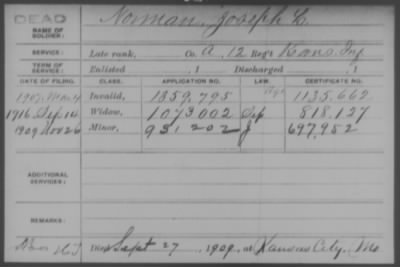 DEAD Norman, Joseph L.
NAME OF SOLDIER:
SERVICE: Late rank, Co. A, 12 Reg't Kans Inf
TERM OF SERVICE: Enlisted , 1 Discharged , 1
DATE OF FILING. CLASS. APPLICATION NO. LAW. CERTIFICATE NO.
1907 Mar 4 Invalid, 1359,795 1135,662
1916 Sep 14 Widow, 1073002 Sep 818,127
1909 Nov 26 Minor, 931202 J 697,952
ADDITIONAL SERVICES:
REMARKS:
Died Sept 27, 1909, at Kansas City, Mo